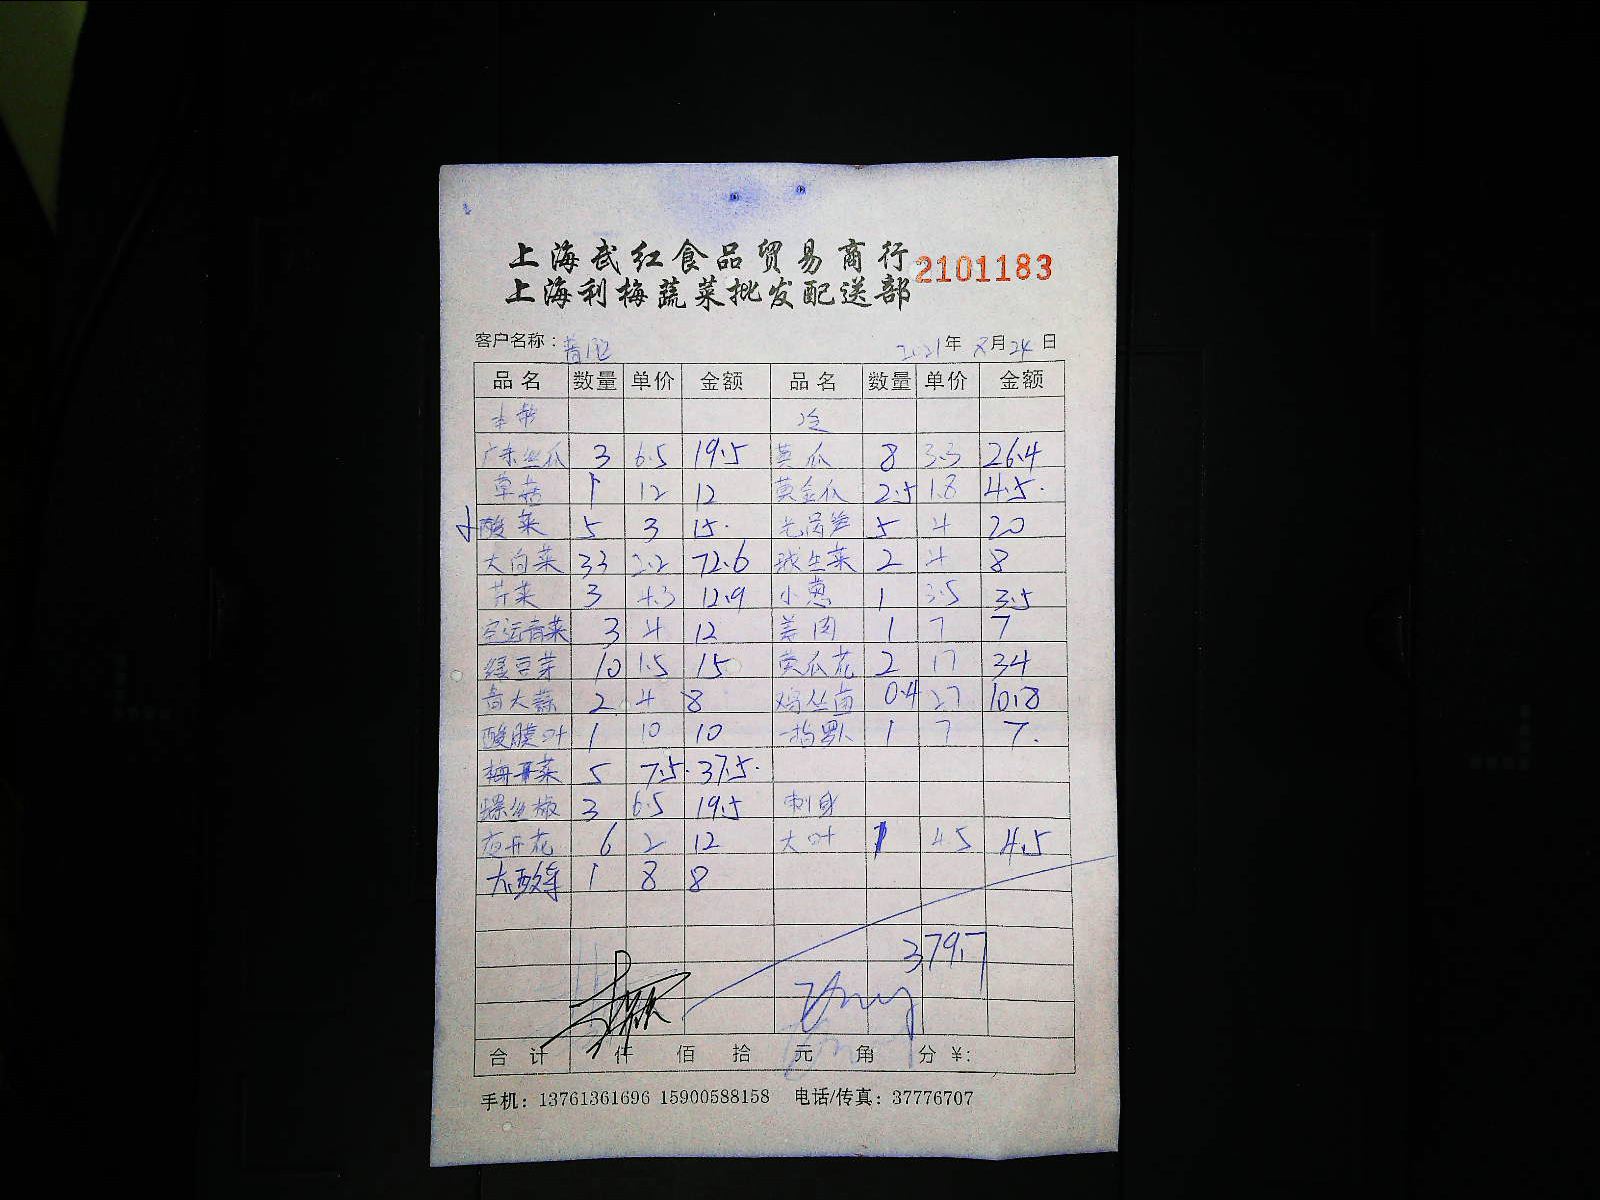 上海武红食品贸易商行 2101183
上海利梅蔬菜批发配送部
客户名称： 2021年 8月24日
品名 数量 单价 金额 品名 数量 单价 金额
冷
广东丝瓜 3 6.5 19.5 黄瓜 8 3.3 26.4
草菇 1 12 12 黄金瓜 2.5 1.8 4.5.
酸菜 5 3 15. 5 4 20
大白菜 33 2.2 72.6 球生菜 2 4 8
芹菜 3 4.3 12.9 小葱 1 3.5 3.5
空运青菜 3 4 12 姜肉 1 7 7
绿豆芽 10 1.5 15 黄瓜花 2 17 34
青大蒜 2 4 8 鸡丛菌 0.4 27 10.8
酸膜叶 1 10 10 1 7 7.
梅干菜 5 7.5. 37.5.
螺丝椒 3 6.5 19.5 刺身
夜开花 6 2 12 大叶 1 4.5 4.5
1 8 8
379.7
合计 仟 佰 拾 元 角 分 ¥:
手机：13761361696 15900588158 电话/传真：37776707